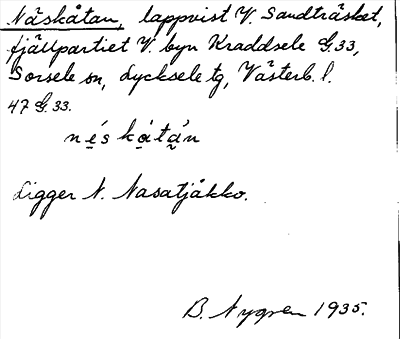 Näskåtan, lappvist V. Sandträsket,
fjällpartiet V. byn Kraddsele G.33,
Sorsele sn, Lycksele tg, Västerb. l.
47 G. 33.
nέ̱s kå̱tá̱n
Ligger N. Nasatjåkko.
B. Nygren 1935.